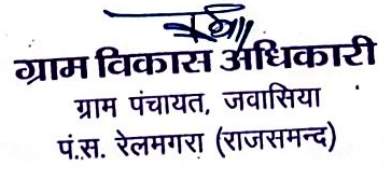 ग्राम विकास अधिकारी
ग्राम पंचायत, जवासिया
पं.स. रेलमगरा (राजसमन्द)